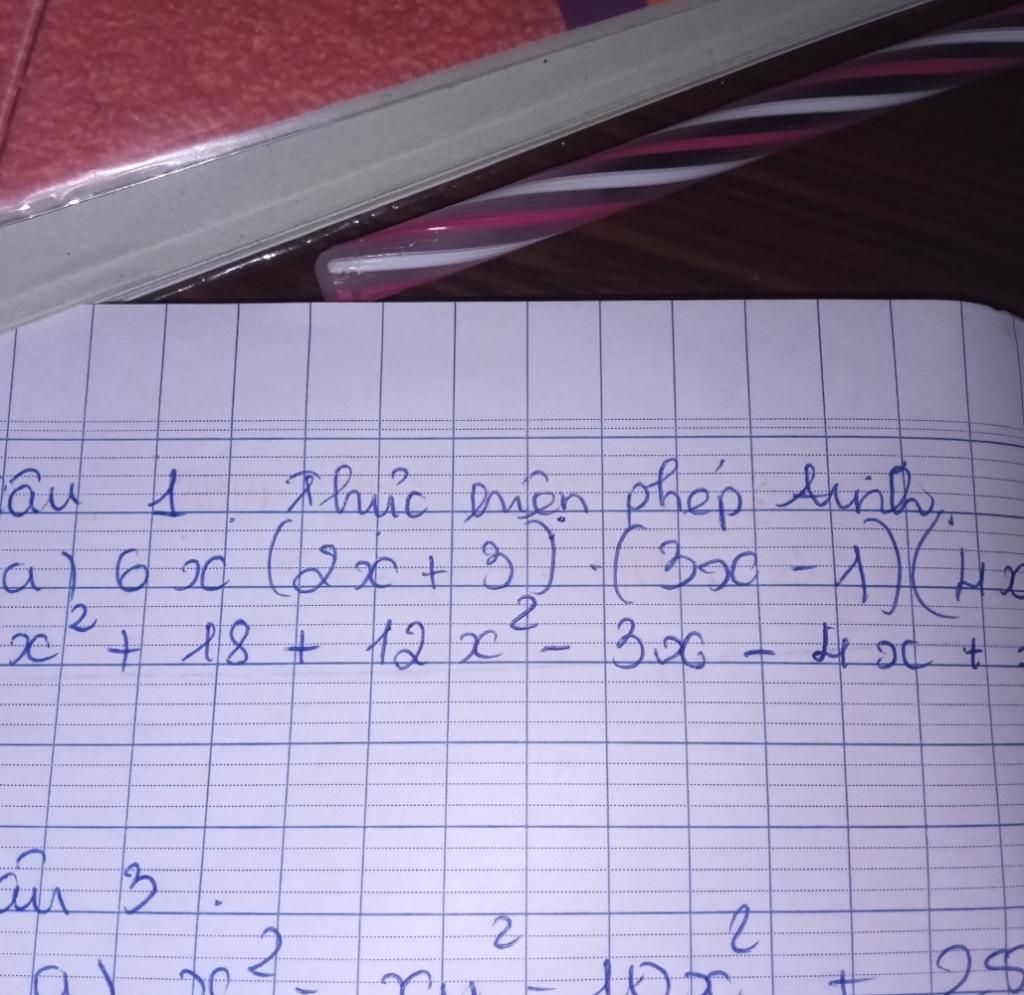 âu 1. Thực hiện phép tính.
a) 6x(2x + 3) - (3x - 1)(4x
x² + 18 + 12x² - 3x - 4x +
âu 3.
a) x² - xy² - 10x² + 25